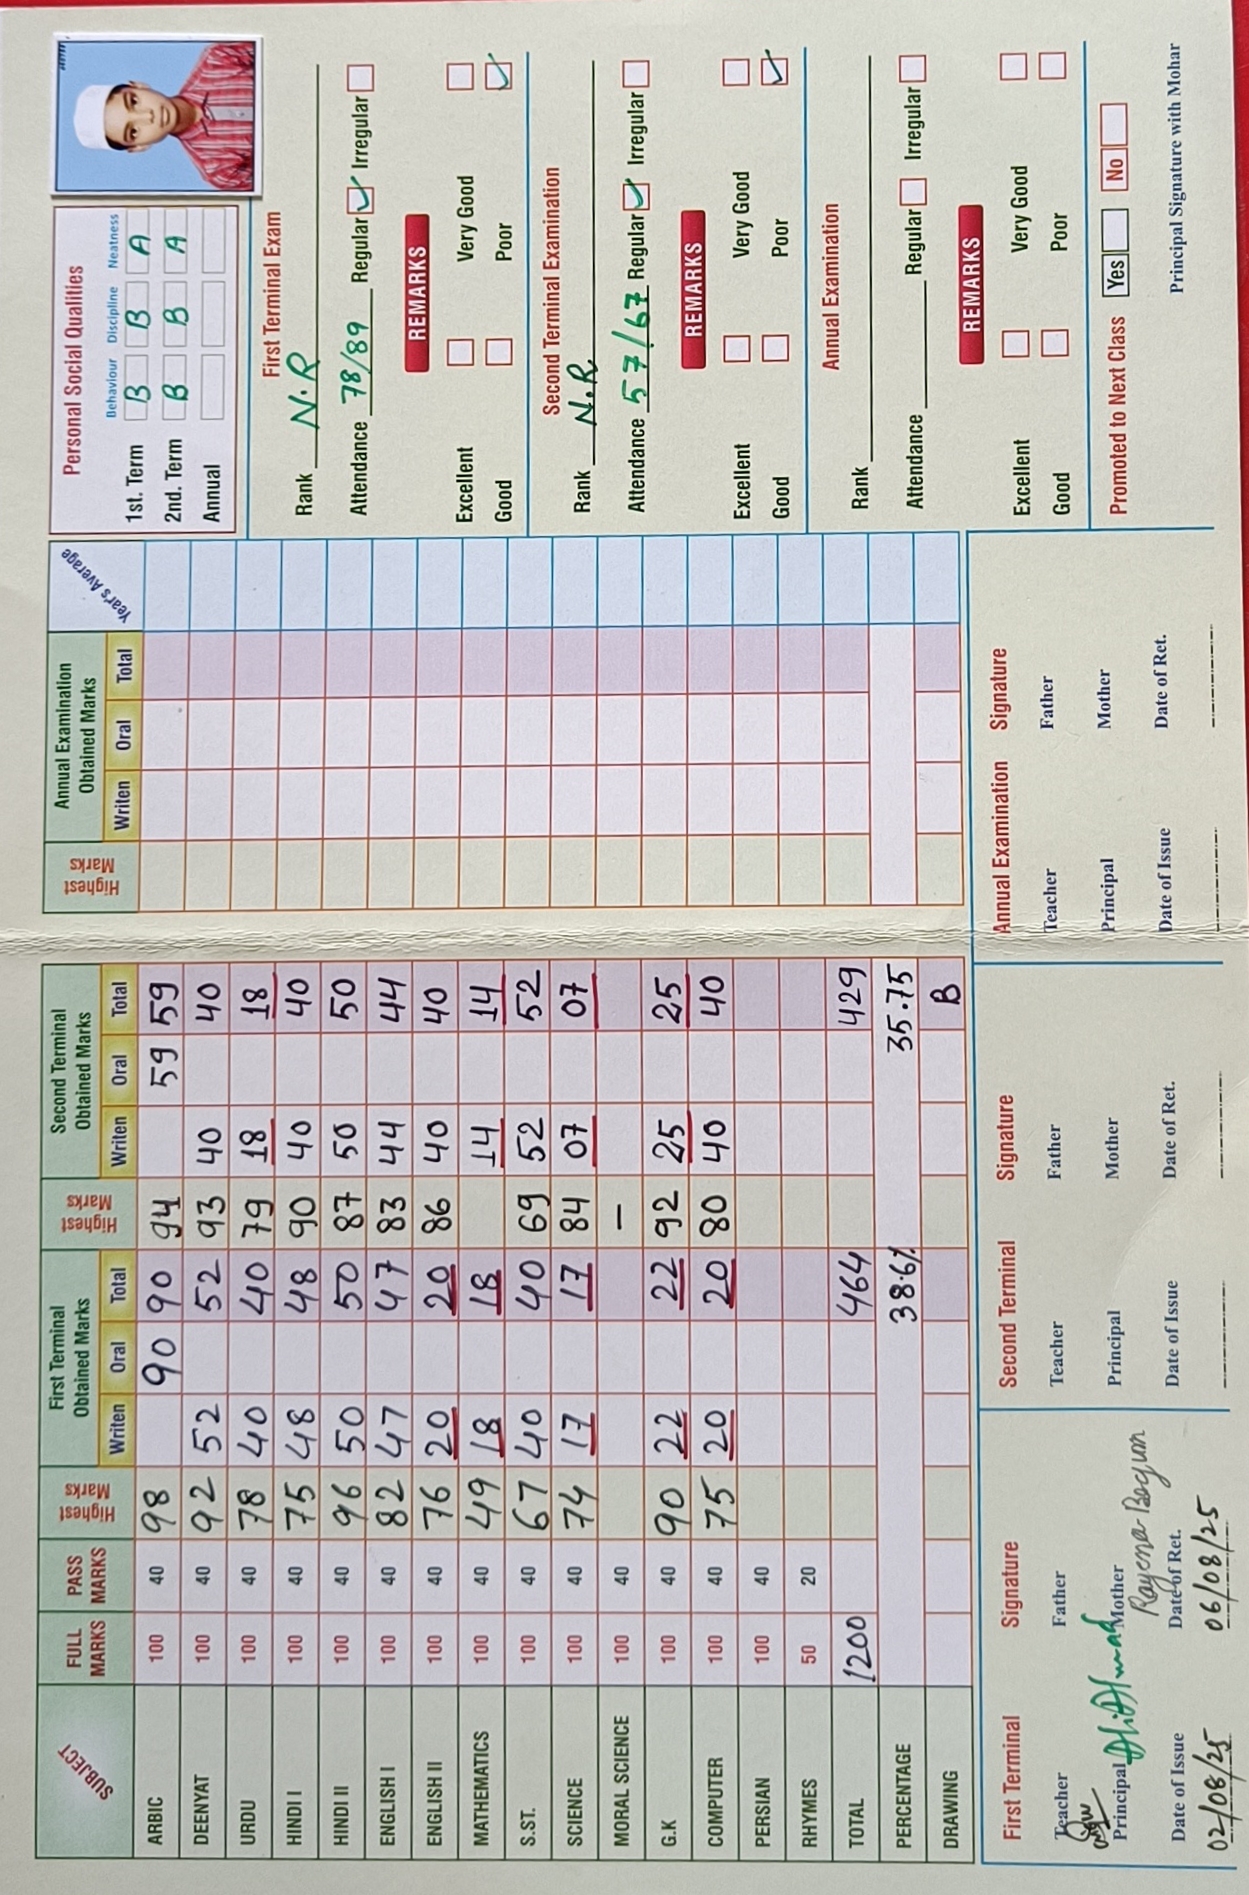 SUBJECT FULL MARKS PASS MARKS Highest Marks First Terminal Obtained Marks Writen Oral Total Highest Marks Second Terminal Obtained Marks Writen Oral Total Highest Marks Annual Examination Obtained Marks Writen Oral Total Year's Average
ARBIC 100 40 98 90 90 94 59 59
DEENYAT 100 40 92 52 52 93 40 40
URDU 100 40 78 40 40 79 18 18
HINDI I 100 40 75 48 48 90 40 40
HINDI II 100 40 96 50 50 87 50 50
ENGLISH I 100 40 82 47 47 83 44 44
ENGLISH II 100 40 76 20 20 86 40 40
MATHEMATICS 100 40 49 18 18 14 14
S.ST. 100 40 67 40 40 69 52 52
SCIENCE 100 40 74 17 17 84 07 07
MORAL SCIENCE 100 40 —
G.K 100 40 90 22 22 92 25 25
COMPUTER 100 40 75 20 20 80 40 40
PERSIAN 100 40
RHYMES 50 20
TOTAL 1200 464 429
PERCENTAGE 38.6% 35.75
DRAWING B
First Terminal Signature
Teacher Father
Principal Ali Ahmad Mother
Rayena Begum
Date of Issue Date of Ret.
02/08/25 06/08/25
Second Terminal Signature
Teacher Father
Principal Mother
Date of Issue Date of Ret.
Annual Examination Signature
Teacher Father
Principal Mother
Date of Issue Date of Ret.
Personal Social Qualities
Behaviour Discipline Neatness
1st. Term B B A
2nd. Term B B A
Annual
First Terminal Exam
Rank N.R
Attendance 78/89 Regular Irregular
REMARKS
Excellent Very Good
Good Poor
Second Terminal Examination
Rank N.R
Attendance 57/67 Regular Irregular
REMARKS
Excellent Very Good
Good Poor
Annual Examination
Rank
Attendance Regular Irregular
REMARKS
Excellent Very Good
Good Poor
Promoted to Next Class Yes No
Principal Signature with Mohar